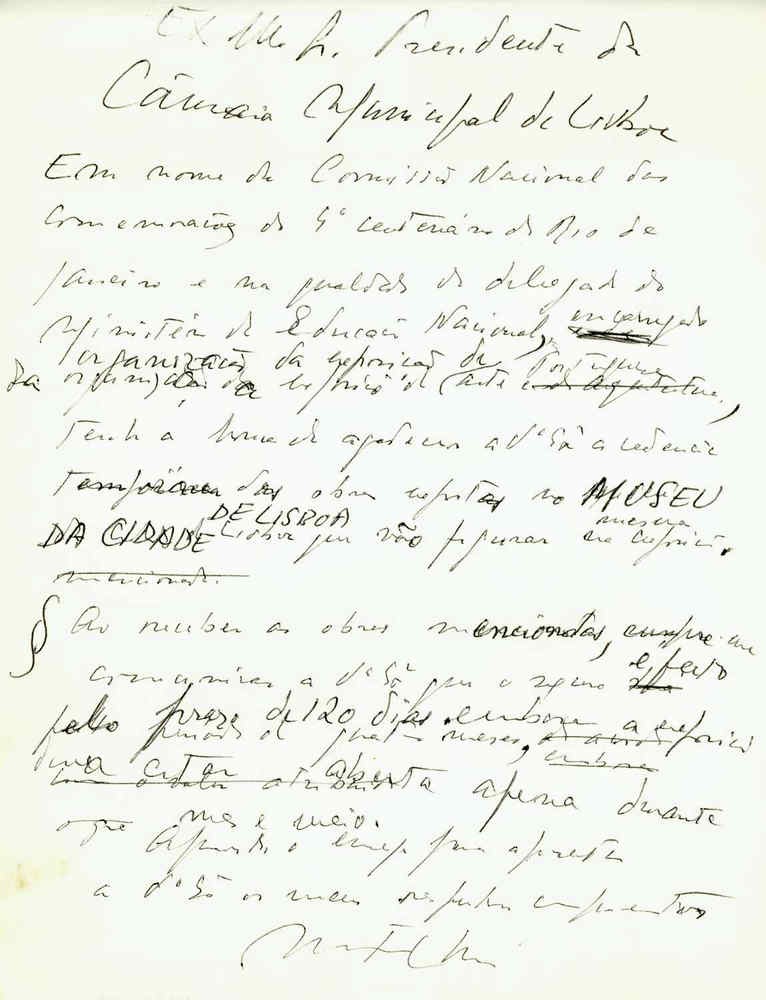 Ex.mo Sr. Presidente da
Câmara Municipal de Lisboa
Em nome da Comissão Nacional das
Comemorações do 4º centenário do Rio de
Janeiro e na qualidade de delegado do
Ministério da Educação Nacional, encarregado
organização da exposição de Portuguesa
da organização da exposição de arte e da
Tenho a honra de agradecer a Vª Exª a cedência
temporária das obras expostas no MUSEU
DE LISBOA mesma
DA CIDADE Lisboa que vão figurar na exposição.
mencionada.
§ Ao receber as obras mencionadas, cumpre-me
comunicar a Vª Exª que o seguro é feito
pelo prazo de 120 dias embora a exposição
período de quatro meses, embora
aberta apenas durante
mes e meio.
Aproveito o ensejo para apresentar
a Vª Exª os meus respeitosos cumprimentos